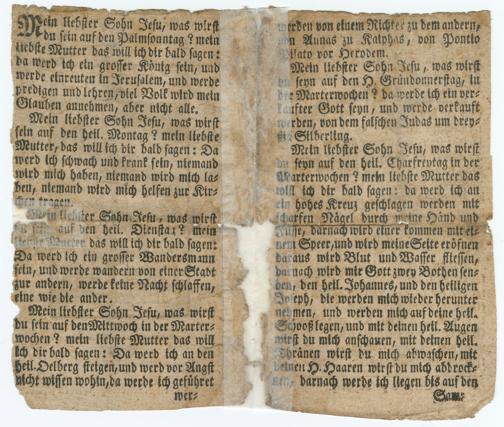 Mein liebster Sohn Jesu, was wirst
du sein auf den Palmsonntag? mein
liebste Mutter das will ich dir bald sagen:
da werd ich ein grosser König sein, und
werde einreuten in Jerusalem, und werde
predigen und lehren, viel Volk wird mein
Glauben annehmen, aber nicht alle.
Mein liebster Sohn Jesu, was wirst
sein auf den heil. Montag? mein liebste
Mutter, das will ich dir bald sagen: Da
werd ich schwach und krank sein, niemand
wird mich haben, niemand wird mich la-
ben, niemand wird mich helfen zur Kir-
chen tragen.
Mein liebster Sohn Jesu, was wirst
du sein auf den heil. Dienstag? mein
liebste Mutter das will ich dir bald sagen:
Da werd ich ein grosser Wandersmann
sein, und werde wandern von einer Stadt
zur andern, werde keine Nacht schlaffen,
eine wie die ander.
Mein liebster Sohn Jesu, was wirst
du sein auf den Mittwoch in der Marter-
wochen? mein liebste Mutter das will
ich dir bald sagen: Da werd ich an den
heil. Oelberg steigen, und werd vor Angst
nicht wissen wohin, da werde ich geführet
wer-
werden von einem Richter zu dem andern,
von Annas zu Kaiphas, von Pontio
Pilato vor Herodem.
Mein liebster Sohn Jesu, was wirst
du seyn auf den H. Gründonnerstag, in
der Marterwochen? da werde ich ein ver-
kaufter Gott seyn, und werde verkauft
werden, von dem falschen Judas um drey-
ßig Silberling.
Mein liebster Sohn Jesu, was wirst
du seyn auf den heil. Charfreytag in der
Marterwochen? mein liebste Mutter das
will ich dir bald sagen: da werd ich an
ein hohes Kreuz geschlagen werden mit
scharfen Nägel durch meine Händ und
Füsse, darnach wird einer kommen mit ei-
nem Speer, und wird meine Seite eröfnen
daraus wird Blut und Wasser fliessen,
darnach wird mir Gott zwey Bothen sen-
den, den heil. Johannes, und den heiligen
Joseph, die werden mich wieder herunter
nehmen, und werden mich auf deine heil.
Schooß legen, und mit deinen heil. Augen
wirst du mich anschauen, mit deinen heil.
Thränen wirst du mich abwaschen, mit
deinen H. Haaren wirst du mich abdrock-
nen, darnach werde ich liegen bis auf den
Sam-